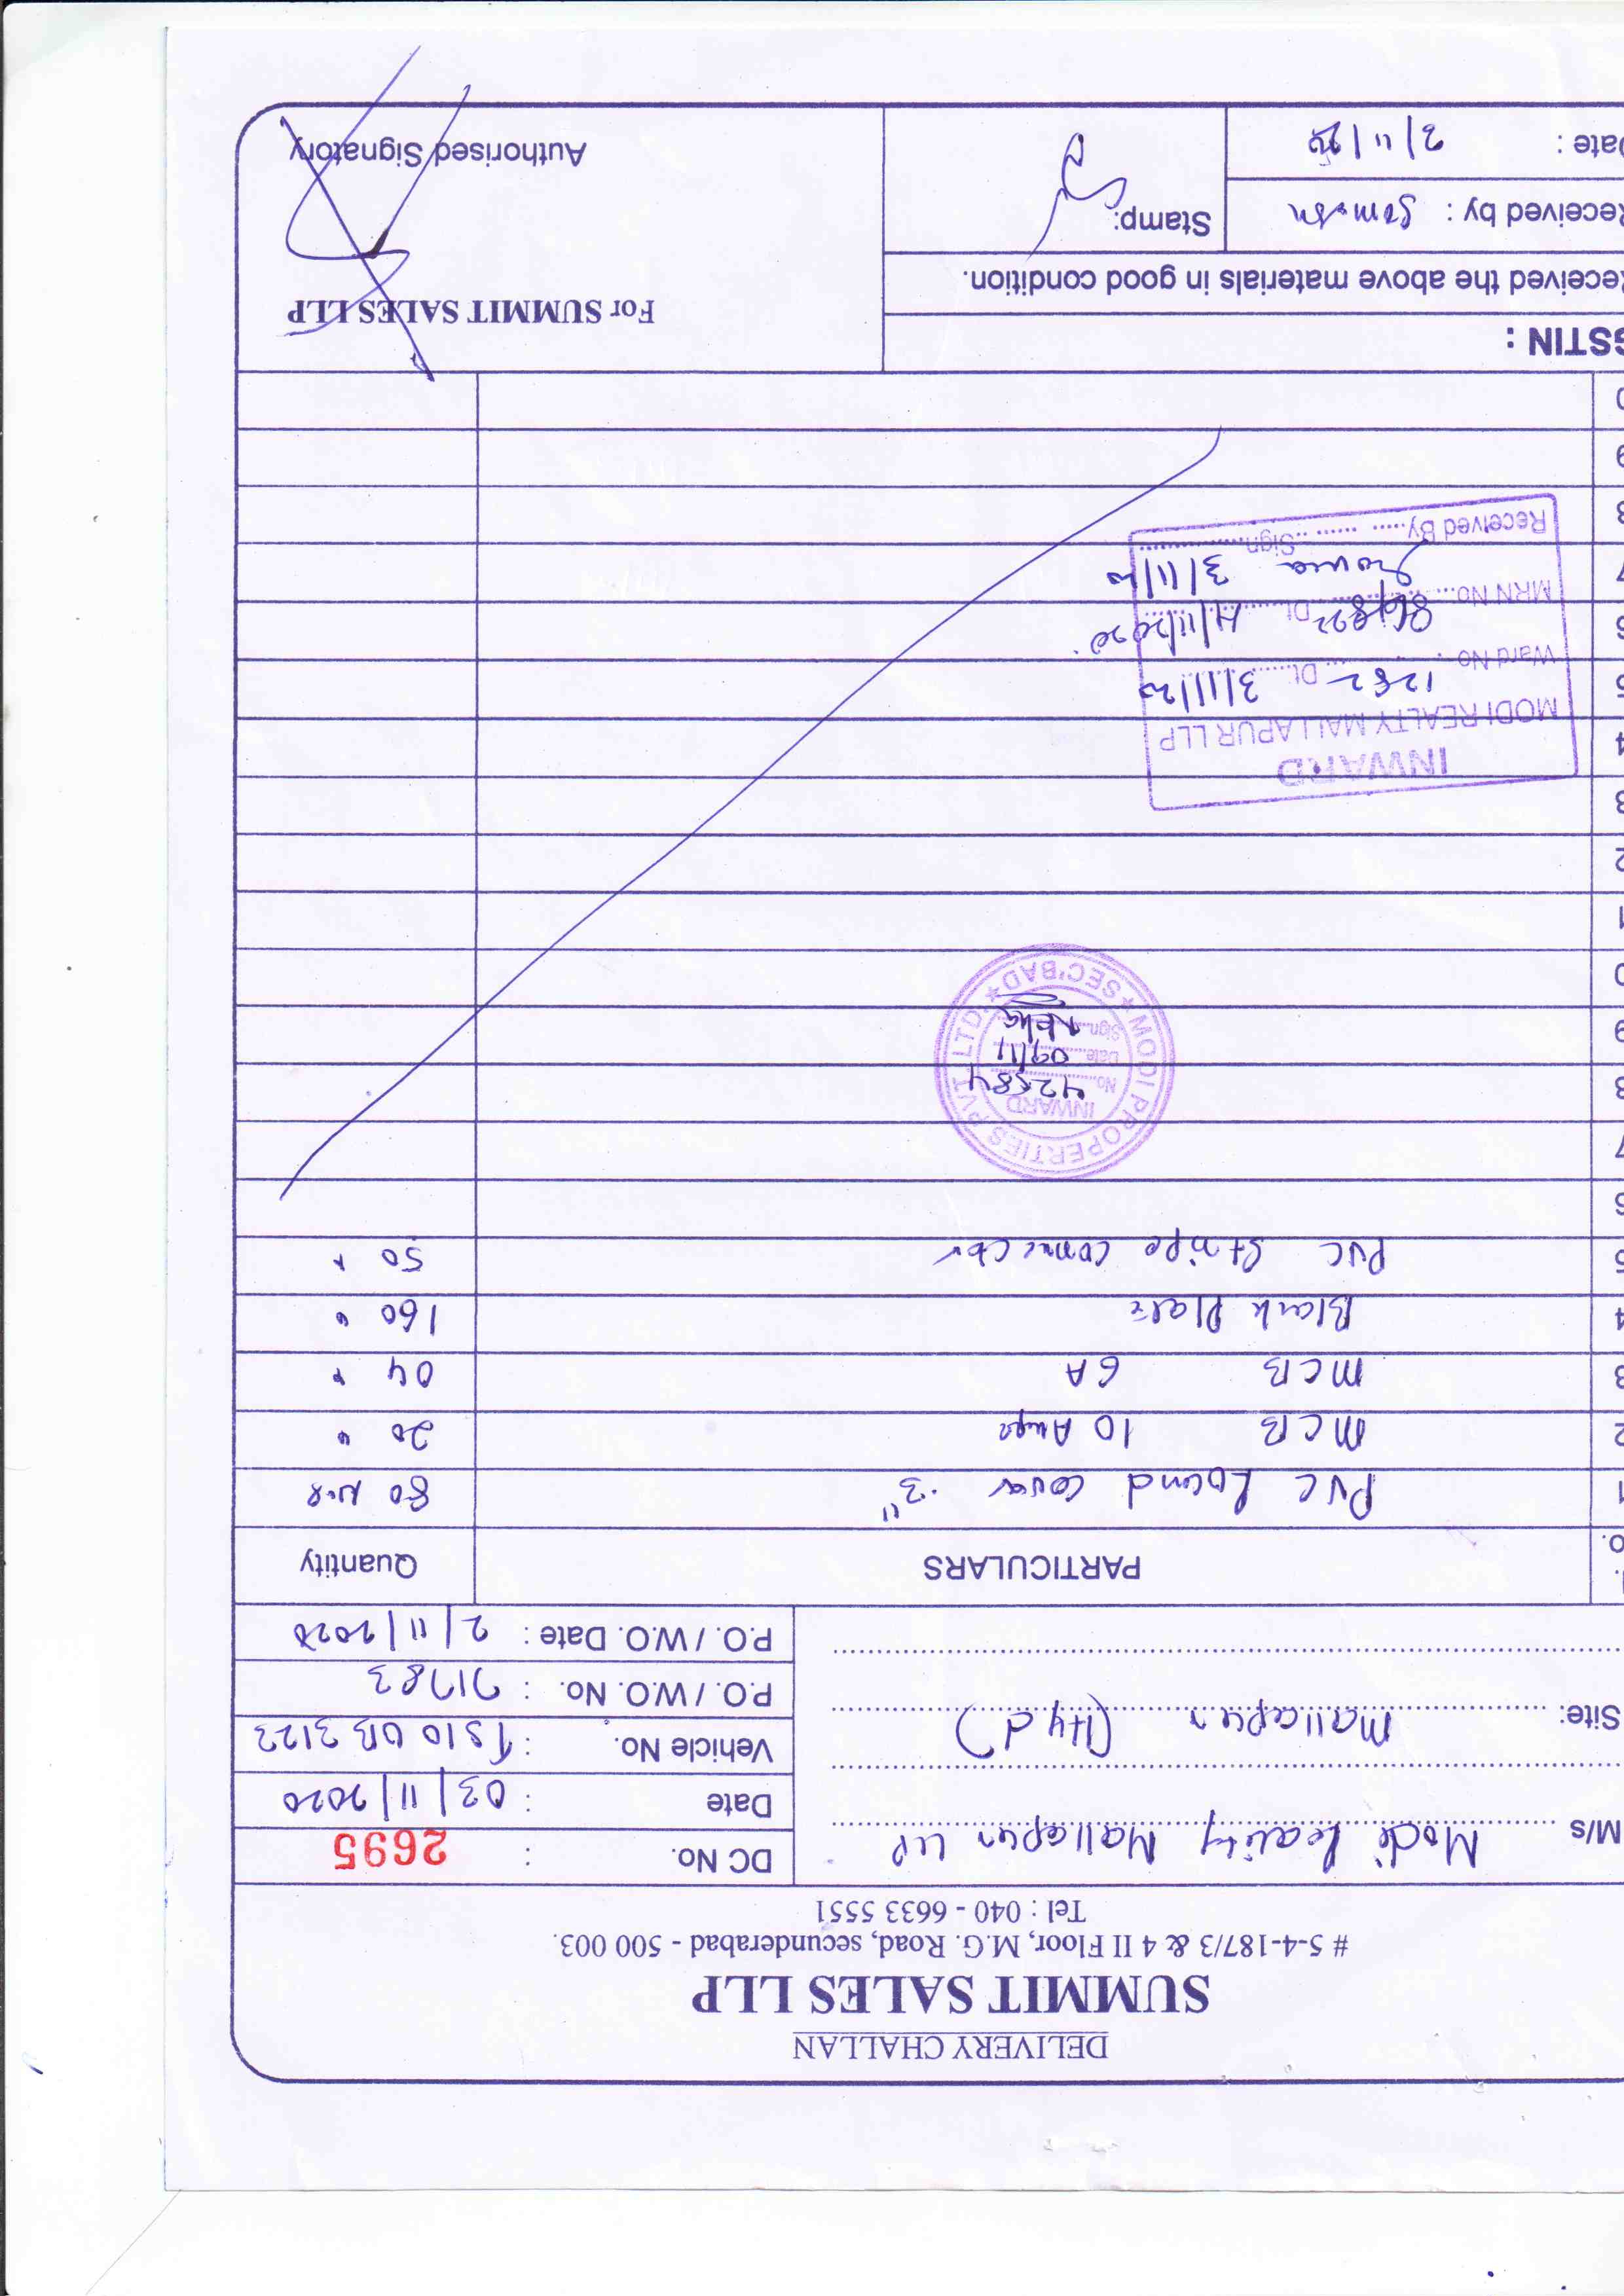 DELIVERY CHALLAN
SUMMIT SALES LLP
# 5-4-187/3 & 4 II Floor, M.G. Road, secunderabad - 500 003.
Tel : 040 - 6633 5551
M/s Modi Reality Mallapur LLP
Site: Mallapur (Hyd)
DC No. : 2695
Date : 03/11/2020
Vehicle No. : TS10UB3123
P.O. / W.O. No. : 71783
P.O. / W.O. Date : 2/11/2020
PARTICULARS Quantity
1 PVC Round Cover 3" 80 Nos
2 MCB 10 Amps 20 "
3 MCB 6A 04 "
4 Blank Plate 160 "
5 PVC Stripe Connector 50 "
6
7
8
9
0
1
2
3
4
5
6
7
8
9
0
MODI PROPERTIES PVT. LTD. ★ SEC'BAD ★
INWARD
No. 42584
Date 09/11
Sign
INWARD
MODI REALTY MALLAPUR LLP
Ward No. 1282 Dt. 3/11/20
MRN No. 86892 Dt. 4/11/2020
Received By Sign 3/11/20
GSTIN :
Received the above materials in good condition.
Received by :
Stamp:
Date : 3/11/20
For SUMMIT SALES LLP
Authorised Signatory